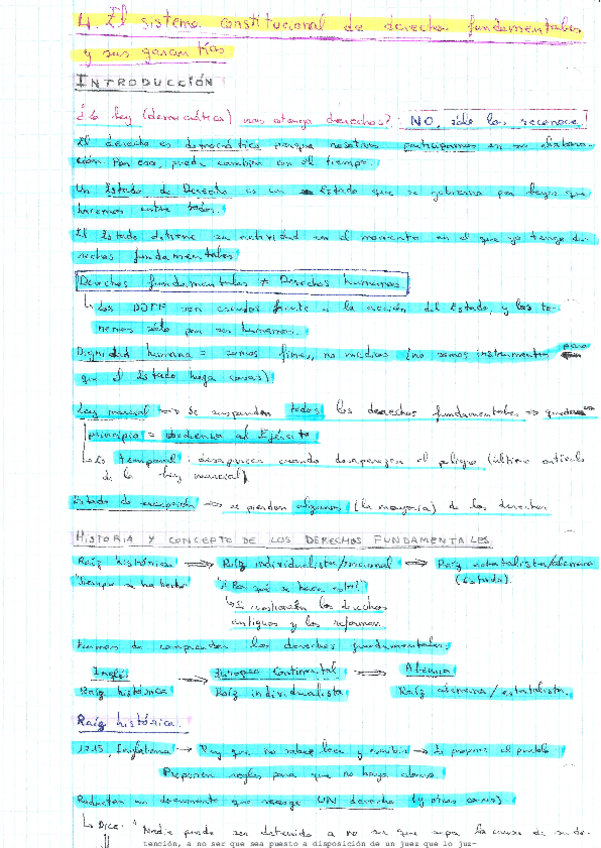 4. El sistema constitucional de derechos fundamentales
y sus garantías
INTRODUCCIÓN
¿La ley (democrática) nos otorga derechos? NO, sólo los reconoce!
El derecho es democrático porque nosotros participamos en su elabora-
ción. Por eso, puede cambiar con el tiempo.
Un Estado de Derecho es un Estado que se gobierna por leyes que
hacemos entre todos.
El Estado detiene su actividad en el momento en el que yo tengo de-
rechos fundamentales.
Derechos fundamentales ≠ Derechos humanos
↳ Los DDFF son escudos frente a la acción del Estado, y los te-
nemos sólo por ser humanos.
Dignidad humana = somos fines, no medios (no somos instrumentos para
que el Estado haga cosas)
Ley marcial → Se suspenden todos los derechos fundamentales ⇒
principio = obediencia al Ejército
↳ Es temporal: desaparece cuando desaparezca el peligro (último artículo
de la ley marcial)
Estado de excepción ⇒ se pierden algunos (la mayoría) de los derechos
HISTORIA Y CONCEPTO DE LOS DERECHOS FUNDAMENTALES
Raíz histórica ⇒ Raíz individualista/racional ⇒ Raíz estatalista/alemana
"Siempre se ha hecho" "¿Por qué se hace esto?" (Estado).
↳ Se cuestionan los derechos
antiguos y los reforman.
Formas de comprender los derechos fundamentales:
Inglés → Europeo Continental ⇒ Alemán
Raíz histórica Raíz individualista Raíz alemana/estatalista.
Raíz histórica.
1215, Inglaterra → Rey que no sabe leer y escribir → Le propone el pueblo
Proponen reglas para que no haya abuso
Redactan un documento que recoge UN derecho (y otras cosas)
↳ Dice: "Nadie puede ser detenido a no ser que sepa la causa de su de-
tención, a no ser que sea puesto a disposición de un juez que lo juz-